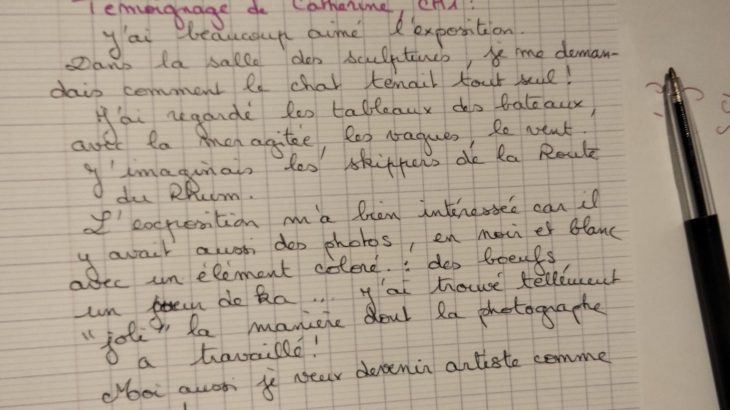 Témoignage de Catherine, CM1 :
J'ai beaucoup aimé l'exposition.
Dans la salle des sculptures, je me deman-
dais comment le chat tenait tout seul !
J'ai regardé les tableaux des bateaux,
avec la mer agitée, les vagues, le vent.
J'imaginais les skippers de la Route
du Rhum.
L'exposition m'a bien intéressée car il
y avait aussi des photos, en noir et blanc
avec un élément coloré : des boeufs
un de ka ... J'ai trouvé tellement
"joli" la manière dont la photographe
a travaillé !
Moi aussi je veux devenir artiste comme